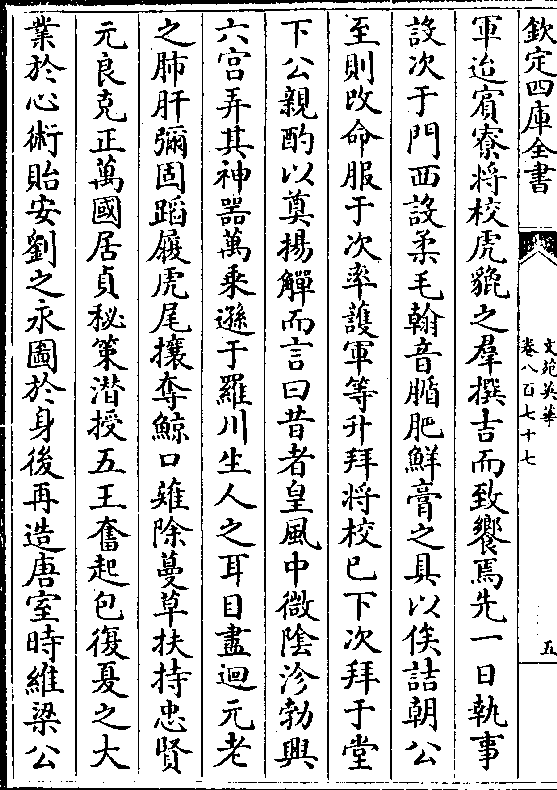 欽定四庫全書
文苑英華
卷八百七十七
五
軍迨賓寮將校虎貔之羣撰吉而致饗焉先一日執事
設次于門西設柔毛翰音腯肥鮮膏之具以俟詰朝公
至則改命服于次率護軍等升拜將校已下次拜于堂
下公親酌以奠揚觶而言曰昔者皇風中微陰沴勃興
六宫弄其神器萬乘遜于羅川生人之耳目盡迴元老
之肺肝彌固蹈履虎尾攘奪鯨口薙除蔓草扶持忠賢
元良克正萬國居貞秘策潛授五王奮起包復夏之大
業於心術貽安劉之永圖於身後再造唐室時維梁公